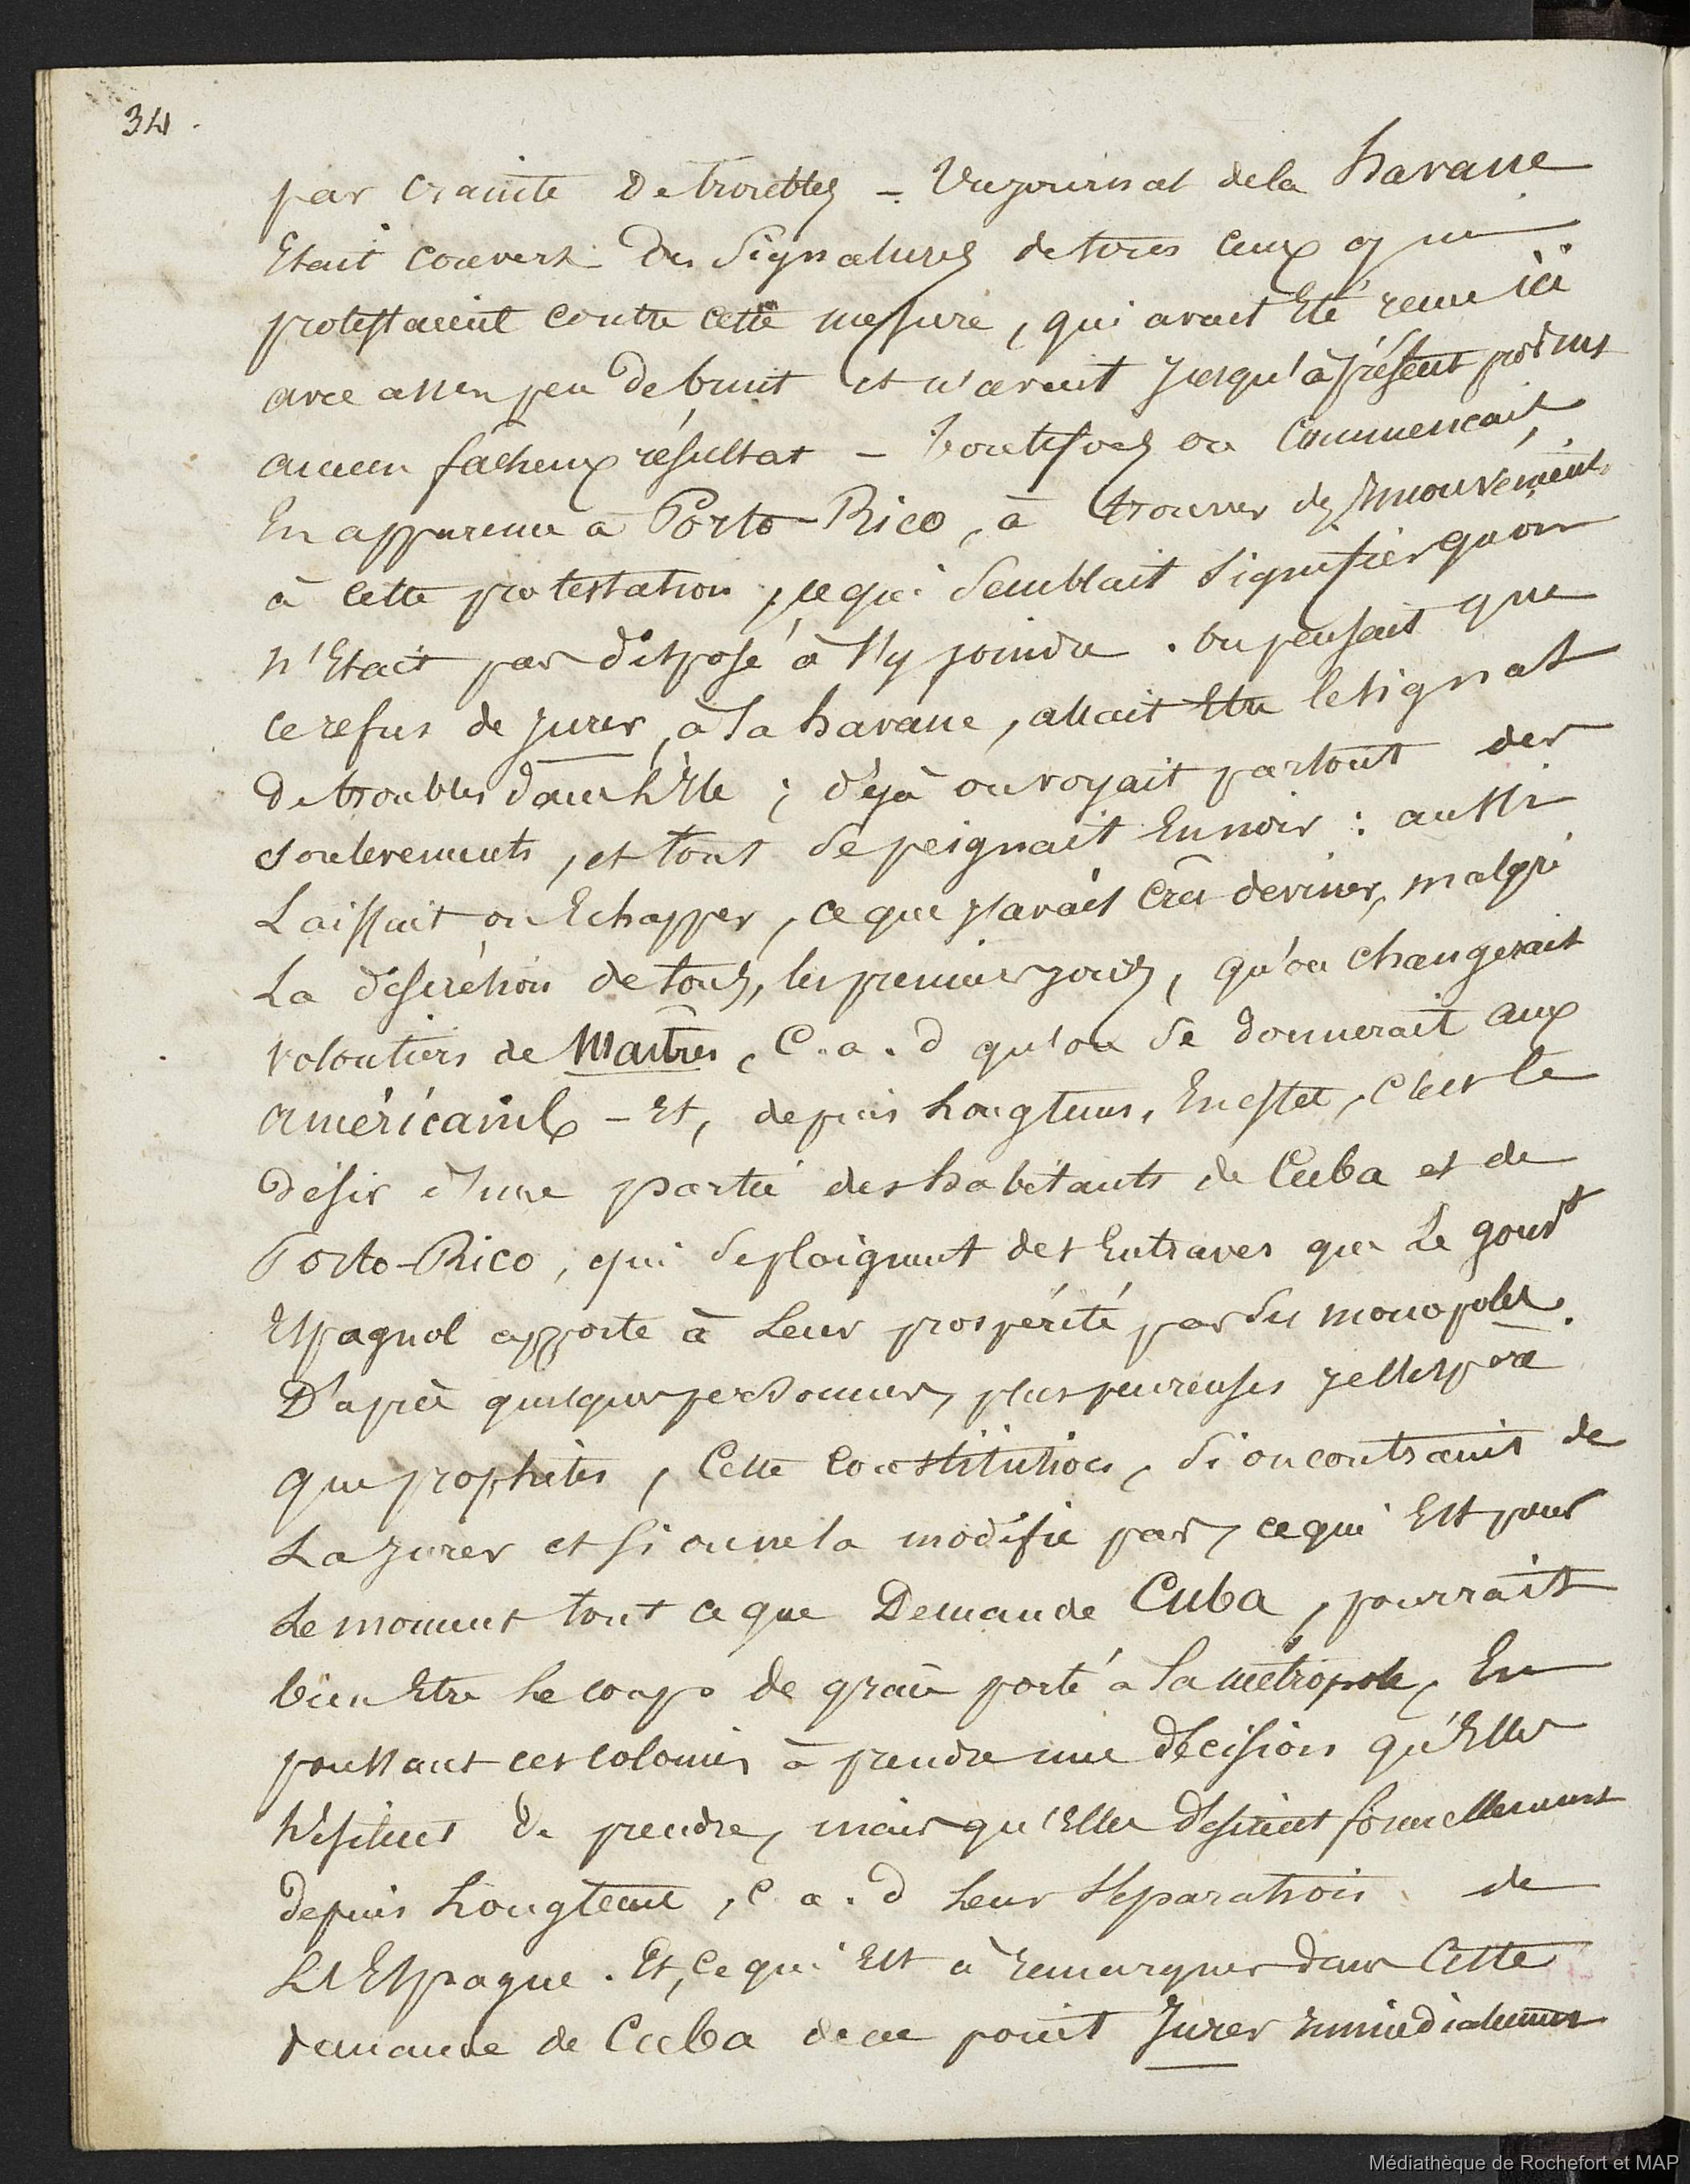 34.
par crainte de troubles – Un journal de la havane
Etait couvert des Signatures de tous ceux qui
protestaient contre cette mesure, qui avait Eté recue ici
avec assez peu de bruit et n'avait jusqu'à présent produit
aucun fâcheux résultat – toutefois on Commencait,
En apparence à Porto-Rico, à trouver des
à cette protestation, ce qui Semblait Signifier quon
n'Etait pas disposé à s'y joindre. On pensait que
ce refus de jurer, à la havane, allait Etre le signal
de troubles dans l'Ile ; déjà on voyait partout des
soulevements, et tout Se peignait En noir : aussi
Laissait on Echapper, ce que j'avais Crû deviner, malgré
La discrétion de tous, les premiers jours, qu'on changerait
volontiers de Maîtres, C. a. d qu'on Se donnerait aux
américains – Et, depuis Longtems, En effet, c'est le
désir d'une partie des habitants de Cuba et de
Porto-Rico, qui Se plaignent des Entraves que Le gouvt
Espagnol apporte à Leur prospérité par Ses monopoles.
D'après quelques personnes, plus peureuses
que prophètes, Cette Constitution, Si on contraint de
La jurer et Si on ne la modifie pas, ce qui Est pour
Le moment tout ce que Demande Cuba, pourrait
bien Etre Le coup de grâce porté à La métropole, En
poussant ces colonies à prendre une décision qu'Elles
hésitent de prendre, mais qu'Elles désirent formellement
depuis Longtems, C. a. d Leur Séparation de
L'Espagne. Et, ce qui Est à remarquer dans Cette
demande de Cuba de ne point Jurer immédiatement
Médiathèque de Rochefort et MAP